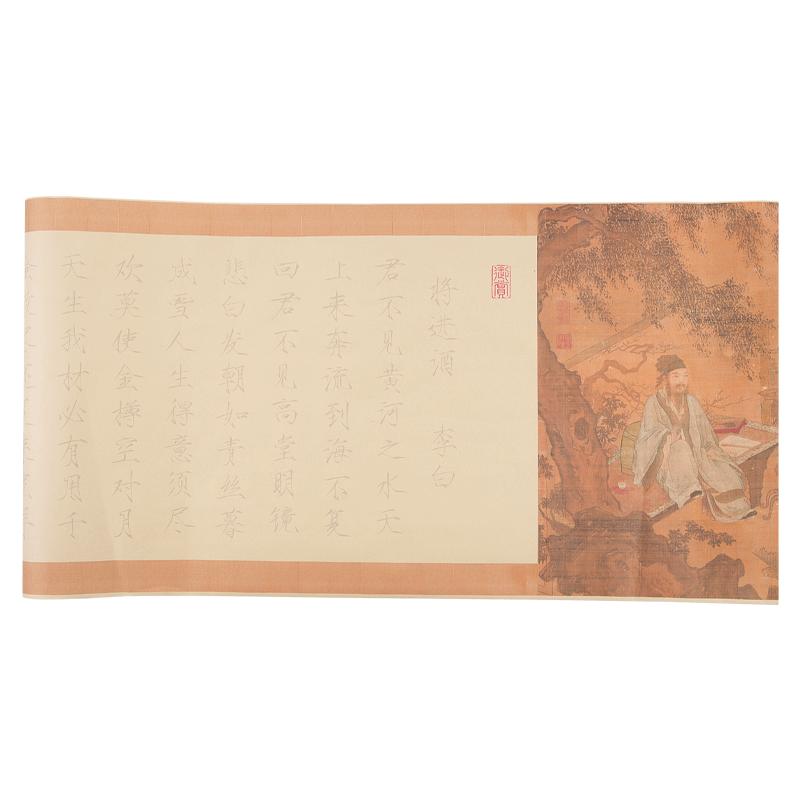 御賞
将进酒 李白
君不见黄河之水天
上来奔流到海不复
回君不见高堂明镜
悲白发朝如青丝暮
成雪人生得意须尽
欢莫使金樽空对月
天生我材必有用千